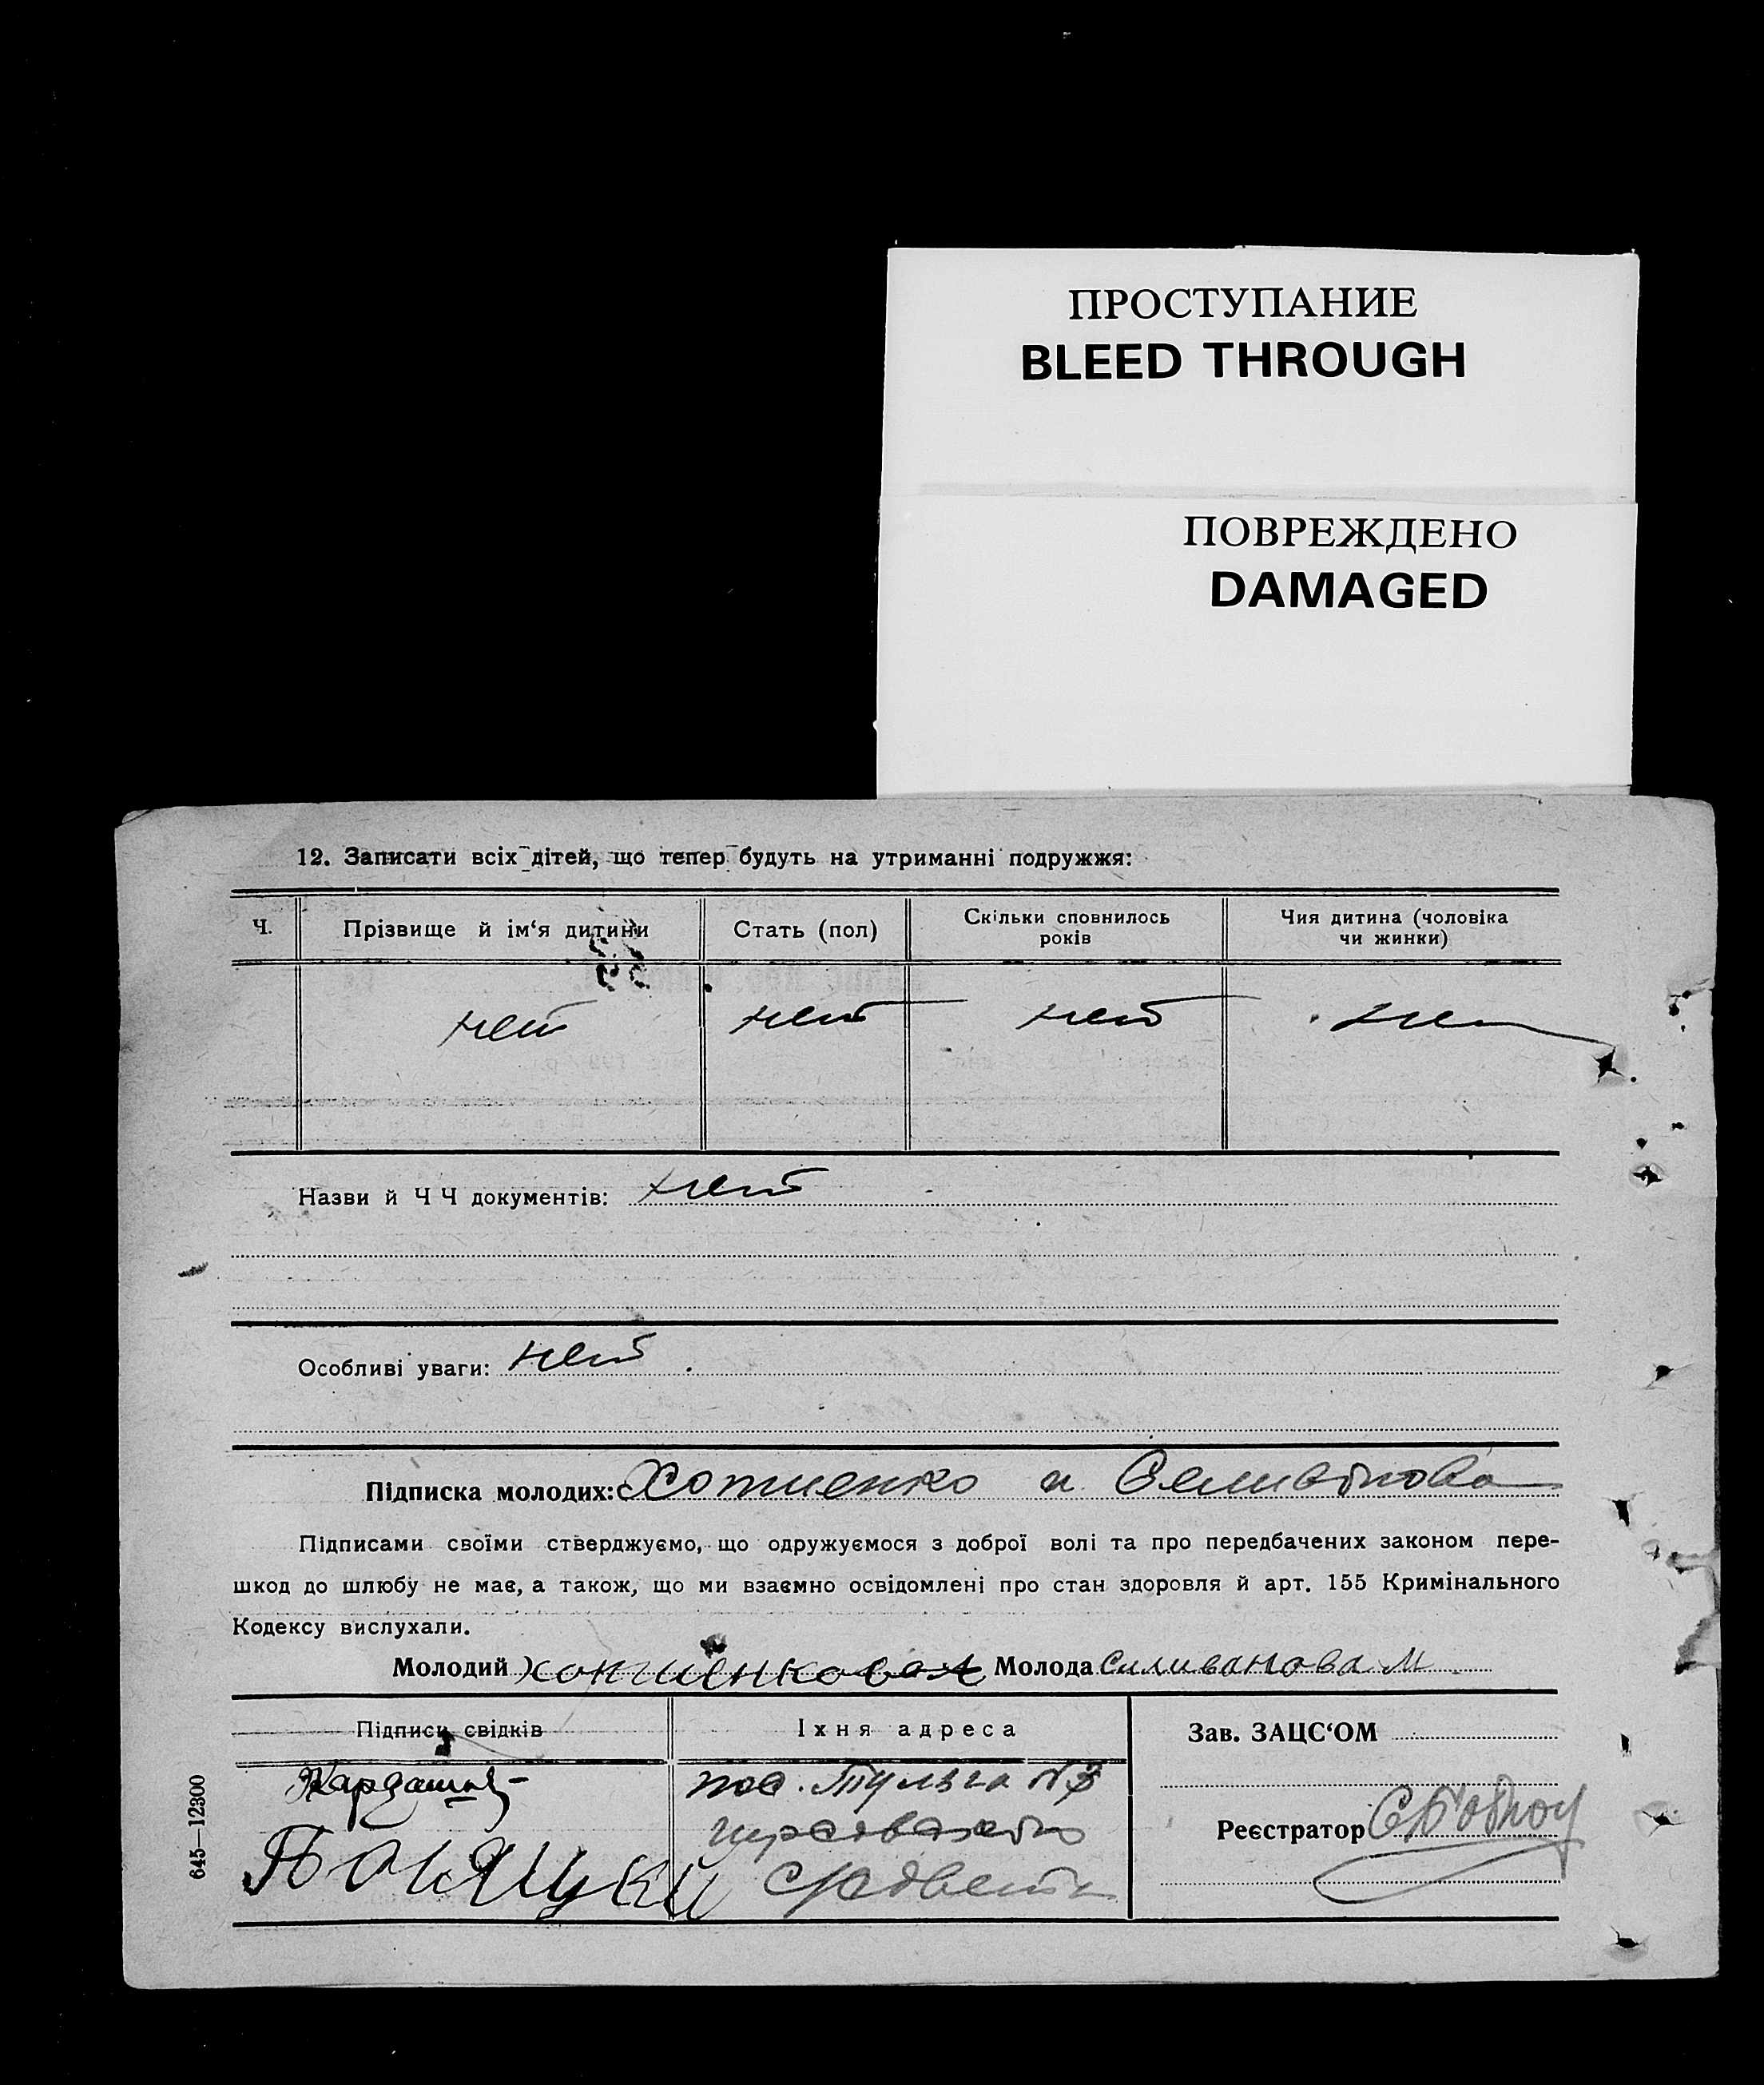 ПРОСТУПАНИЕ
BLEED THROUGH
ПОВРЕЖДЕНО
DAMAGED
12. Записати всіх дітей, що тепер будуть на утриманні подружжя:
Ч. Прізвище й ім‘я дитини Стать (пол) Скільки сповнилось років Чия дитина (чоловіка чи жинки)
нет нет нет нет
Назви й Ч Ч документів: нет
Особливі уваги: нет
Підписка молодих: Хотиенко и Селиванова
Підписами своїми стверджуємо, що одружуємося з доброї волі та про передбачених законом пере-
шкод до шлюбу не має, а також, що ми взаємно освідомлені про стан здоровля й арт. 155 Кримінального
Кодексу вислухали.
Молодий Молода Силиванова М
Підписи свідків Їхня адреса Зав. ЗАЦС‘ОМ
Кардашов пос.
Реєстратор
645—12300